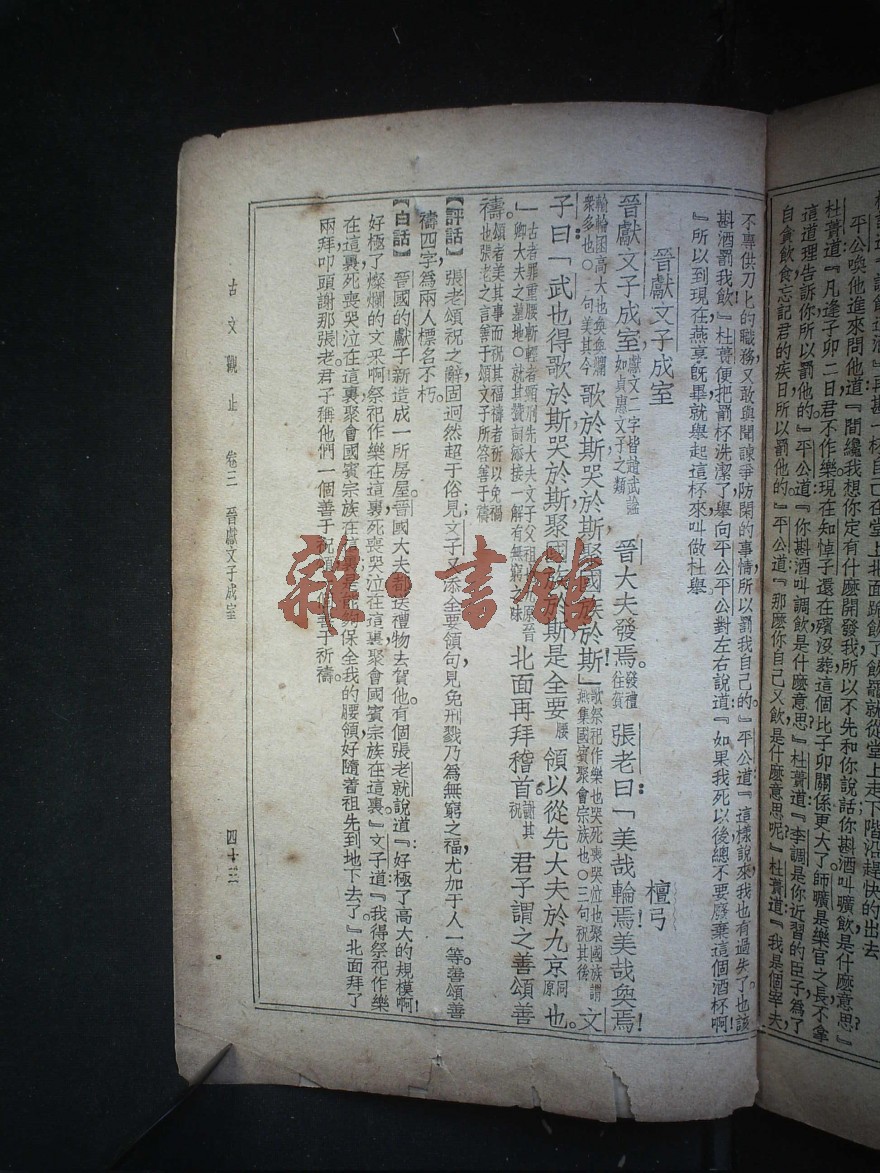 平公喚他進來問他道『間纔我想你定有什麼開發我所以不先和你說話你斟酒叫曠飲是什麼意思』
杜蕢道『凡逢子卯二日君不作樂現在知悼子還在殯沒葬這個比子卯關係更大了師曠是樂官之長不拿
這道理告訴你所以罰他的』平公道『你斟酒叫調飲是什麼意思』杜蕢道『李調是你近習的臣子為了
自貪飲食忘記君的疾日所以罰他的』平公道『那麼你自己又飲是什麼意思呢』杜蕢道『我是個宰夫
不專供刀匕的職務又敢與聞諫爭防閑的事情所以罰我自己的』平公道『這樣說來我也有過失了也該
斟酒罰我飲』杜蕢便把罰杯洗潔了舉向平公平公對左右說道『如果我死以後總不要廢棄這個酒杯啊
』所以到現在燕享既畢就舉起這杯來叫做杜舉
晉獻文子成室
檀弓
晉獻文子成室獻文二字皆趙武諡如貞惠文子之類晉大夫發焉。發禮往賀張老曰：「美哉輪焉！美哉奐焉！
輪輪囷高大也奐奐爛衆多也○句美其今歌於斯哭於斯聚國族於斯」歌祭祀作樂也哭死喪哭泣也聚國族謂燕集國賓聚會宗族也○三句祝其後文
子曰：「武也得歌於斯哭於斯聚國族於斯是全要腰領以從先大夫於九京同原也。
」古者罪重腰斬輕者頸刑先大夫文子父祖九原晉卿大夫之墓地○就其贊詞添接一解有無窮之味北面再拜稽首。謝其祝君子謂之善頌善
禱。頌者美其事而祝其福禱者祈以免禍也張老之言善于頌文子所答善于禱
【評話】張老頌祝之辭固迥然超于俗見文子又添全要領句見免刑戮乃為無窮之福尤加于人一等善頌善
禱四字為兩人標名不朽。
【白話】晉國的獻子新造成一所房屋晉國大夫都送禮物去賀他有個張老就說道：『好極了高大的規模啊！
好極了燦爛的文采啊！祭祀作樂在這裏死喪哭泣在這裏聚會國賓宗族在這裏』文子道：『我得祭祀作樂
在這裏死喪哭泣在這裏聚會國賓宗族在這裏是能夠保全我的腰領好隨着祖先到地下去了』北面拜了
兩拜叩頭謝那張老君子稱他們一個善于祝頌善于祈禱。
古文觀止 卷三 晉獻文子成室 四十三
雜·書館